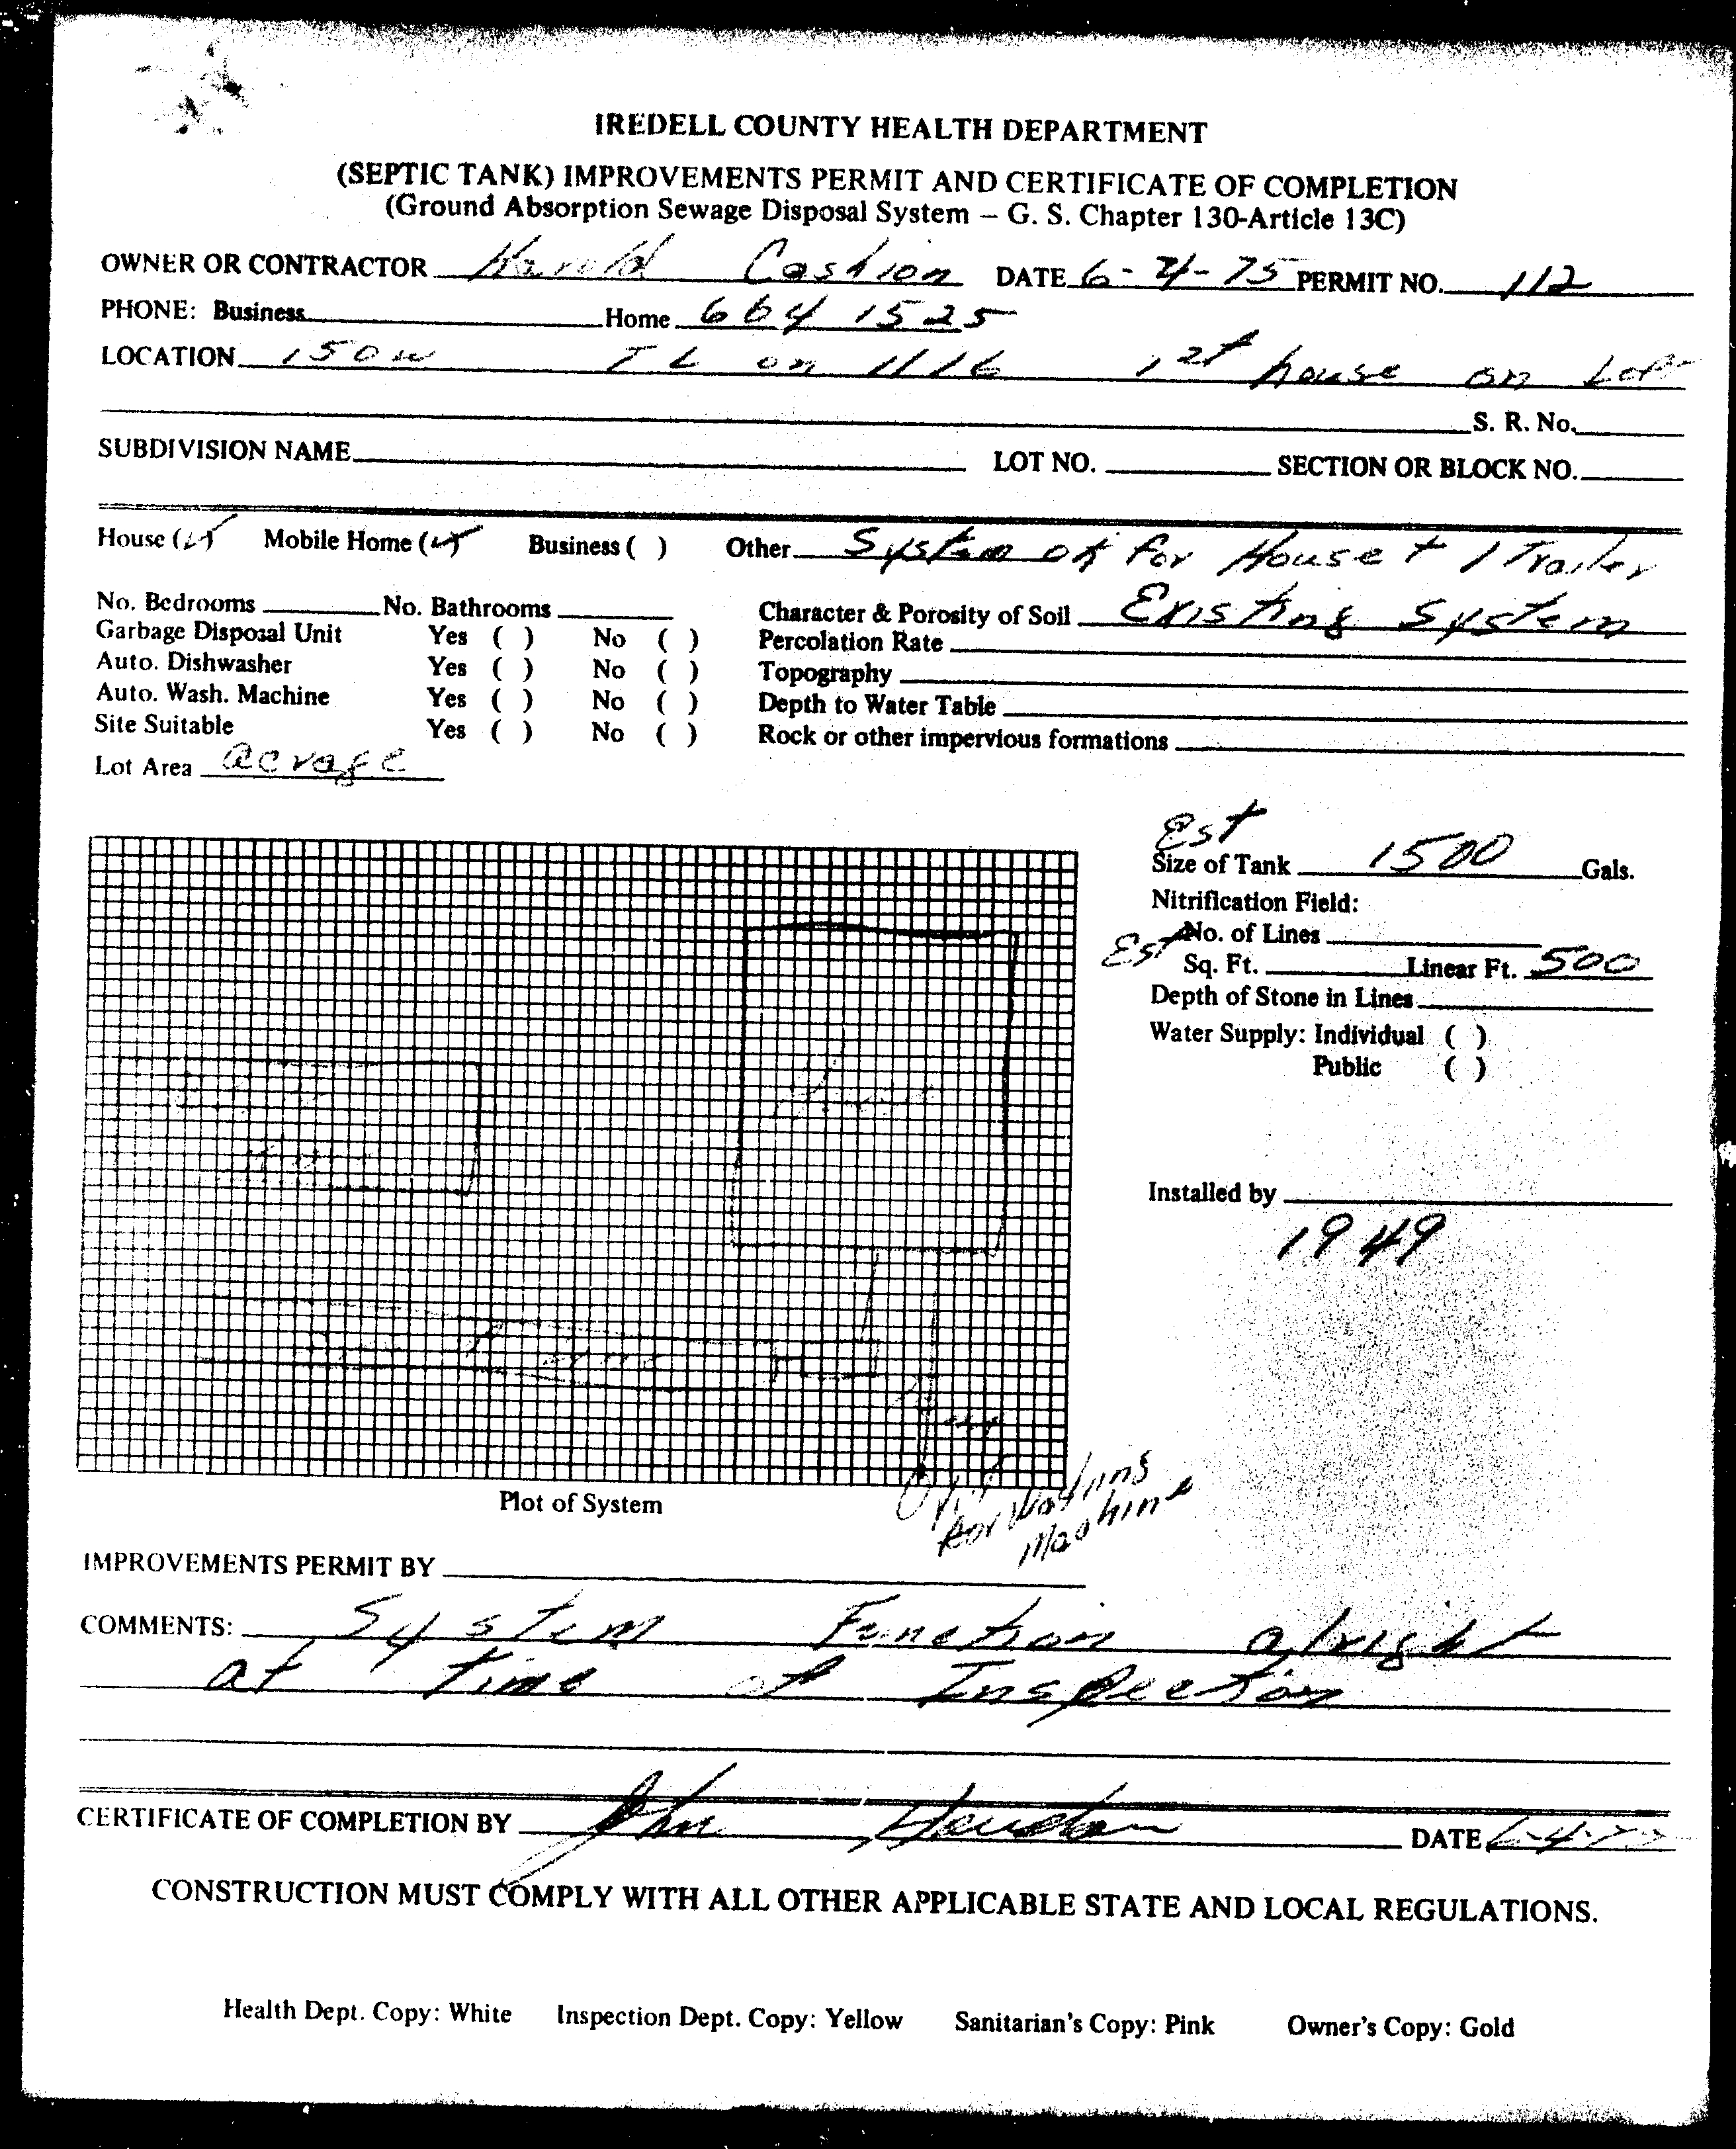 IREDELL COUNTY HEALTH DEPARTMENT
(SEPTIC TANK) IMPROVEMENTS PERMIT AND CERTIFICATE OF COMPLETION
(Ground Absorption Sewage Disposal System – G. S. Chapter 130-Article 13C)
OWNER OR CONTRACTOR Harold Cashion DATE 6-4-75 PERMIT NO. 112
PHONE: Business Home 664 1525
LOCATION 150 W T L on 1116 1st house on Left
S. R. No.
SUBDIVISION NAME LOT NO. SECTION OR BLOCK NO.
House (✓) Mobile Home (✓) Business ( ) Other System ok for House + 1 Trailer
No. Bedrooms No. Bathrooms Character & Porosity of Soil Existing System
Garbage Disposal Unit Yes ( ) No ( ) Percolation Rate
Auto. Dishwasher Yes ( ) No ( ) Topography
Auto. Wash. Machine Yes ( ) No ( ) Depth to Water Table
Site Suitable Yes ( ) No ( ) Rock or other impervious formations
Lot Area acrage
Est
Size of Tank 1500 Gals.
Nitrification Field:
Est No. of Lines
Sq. Ft. Linear Ft. 500
Depth of Stone in Lines
Water Supply: Individual ( )
Public ( )
Installed by
1949
Plot of System
for Washing
Machine
IMPROVEMENTS PERMIT BY
COMMENTS: System Function alright
at time of Inspection
CERTIFICATE OF COMPLETION BY John Heudon DATE
CONSTRUCTION MUST COMPLY WITH ALL OTHER APPLICABLE STATE AND LOCAL REGULATIONS.
Health Dept. Copy: White Inspection Dept. Copy: Yellow Sanitarian's Copy: Pink Owner's Copy: Gold